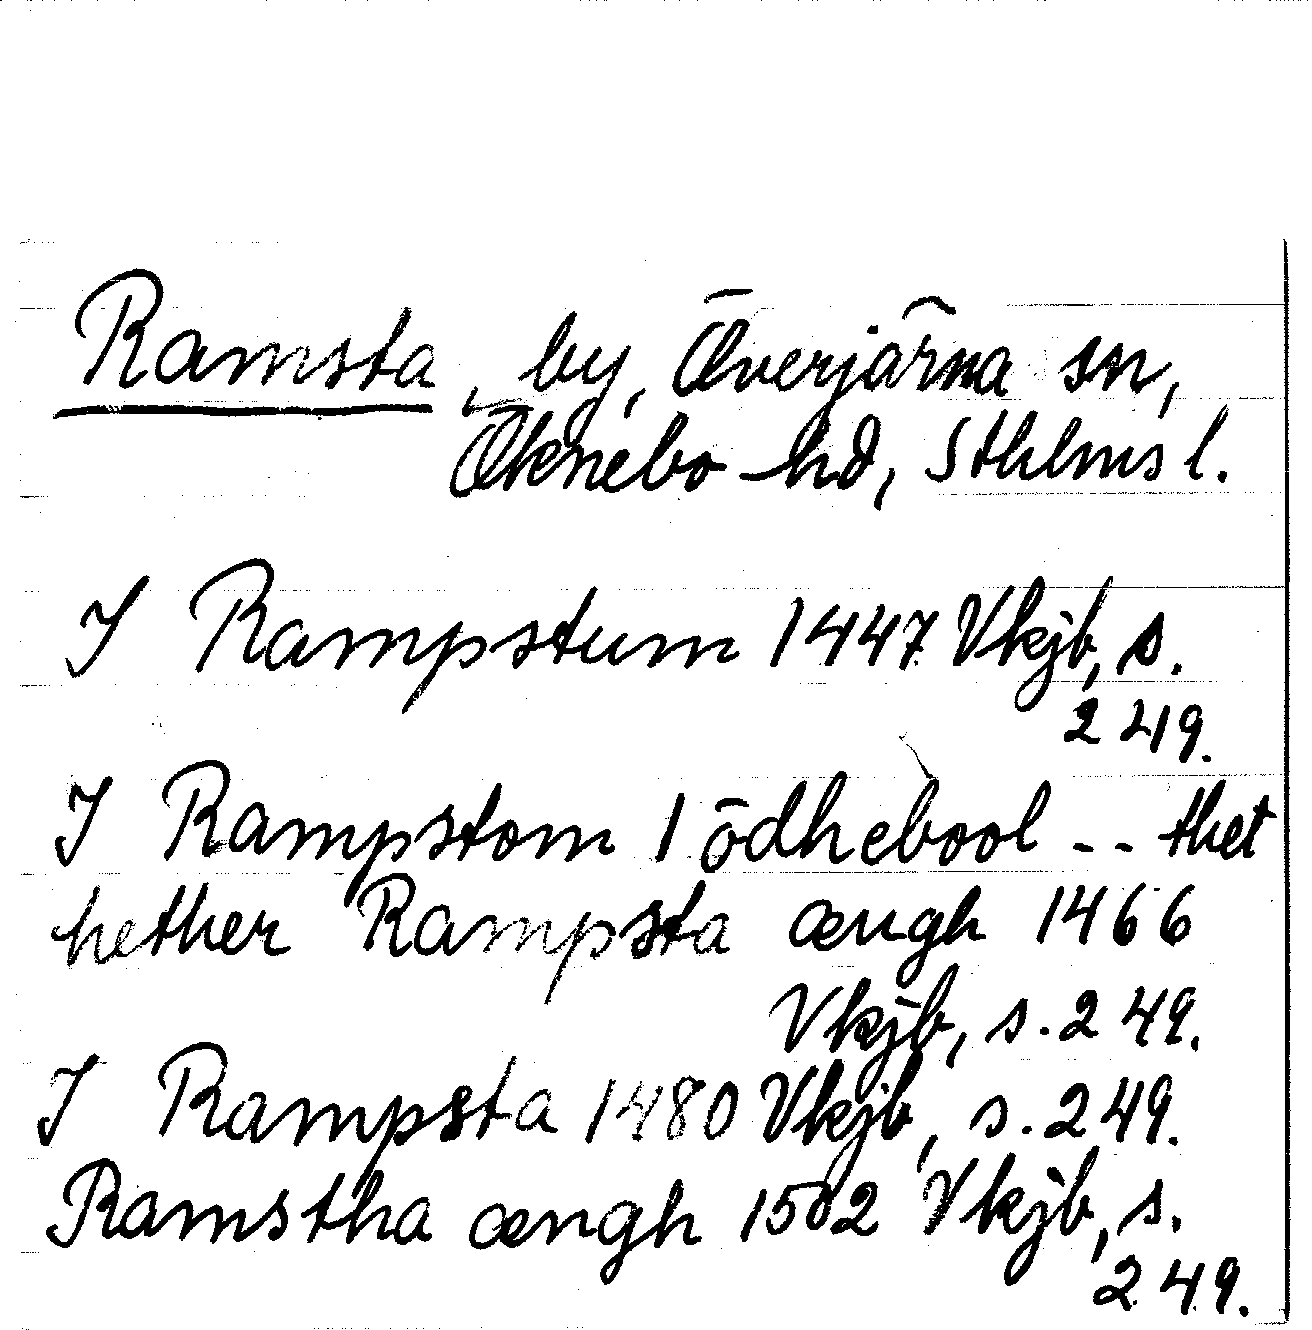 Ramsta, by, Överjärna sn,
Öknebo hd, Sthlms l.
I Rampstum 1447 Vkjb, s.
249.
I Rampstom 1 ödhebool -- thet
hether Rampsta ængh 1466
Vkjb, s. 249.
I Rampsta 1480 Vkjb, s. 249.
Ramstha ængh 1502 Vkjb, s.
249.